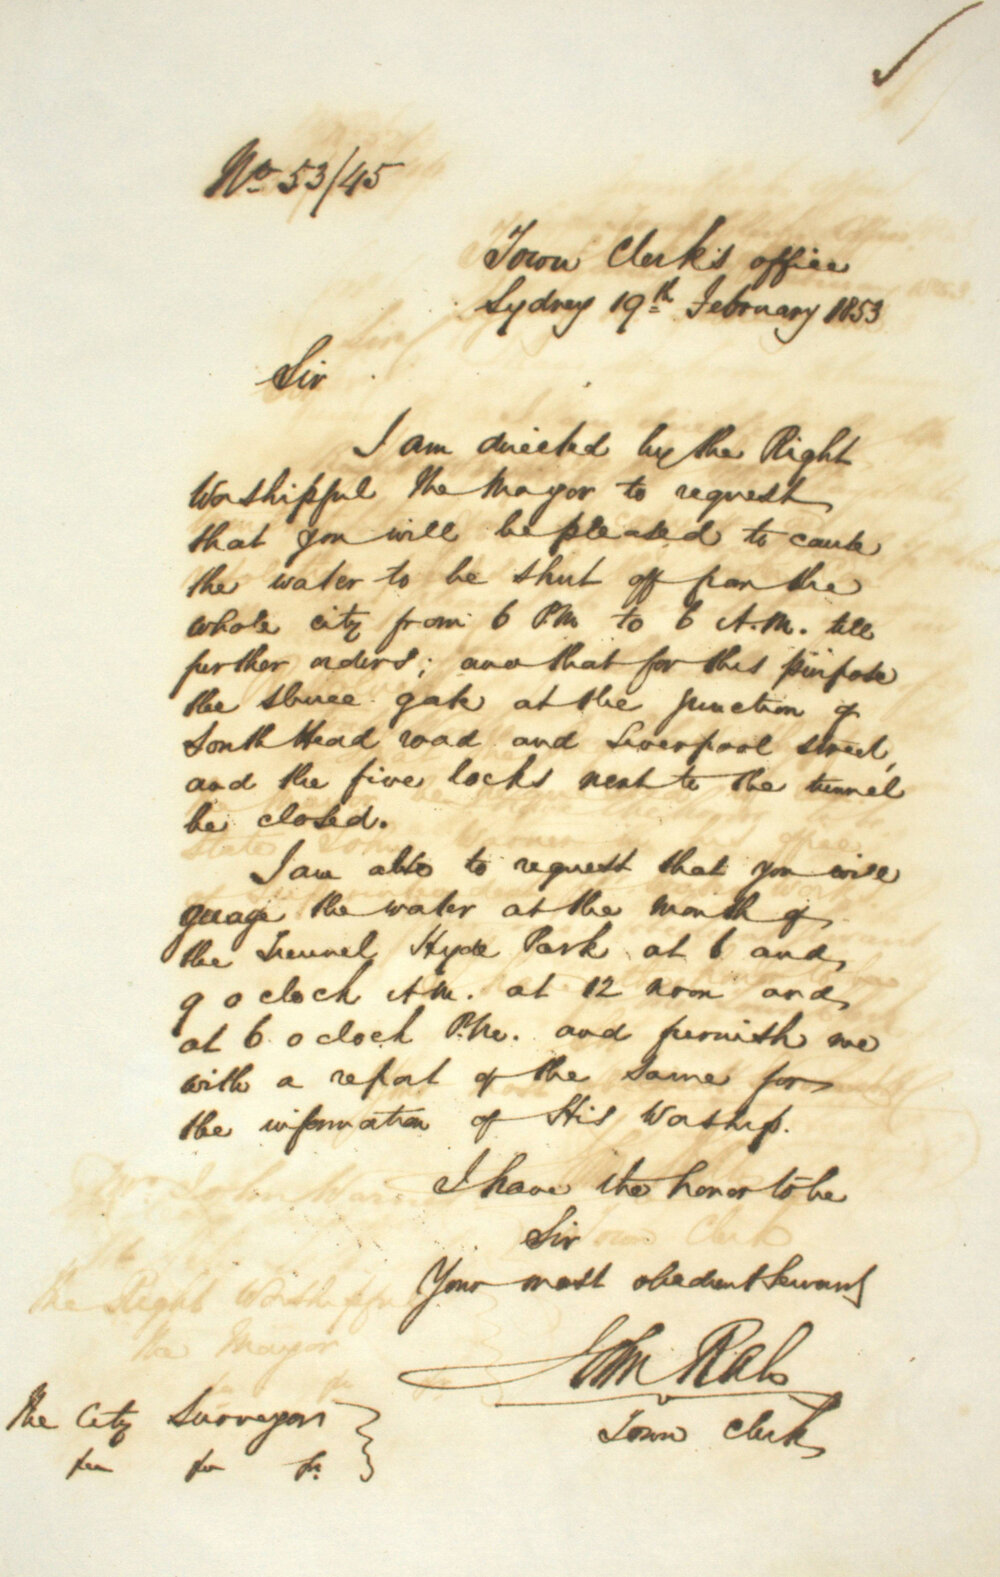 No 53/45
Town Clerk's office
Sydney 19th February 1853
Sir
I am directed by the Right
Worshipful the Mayor to request
that you will be pleased to cause
the water to be shut off from the
whole city from 6 PM to 6 A.M. till
further orders; and that for this purpose
the sluice gate at the junction of
South Head road and Liverpool street,
and the five locks next to the tunnel
be closed.
I am also to request that you will
guage the water at the mouth of
the Tunnel Hyde Park at 6 and
9 o clock AM. at 12 noon and
at 6 o clock P.M. and furnish me
with a report of the same for
the information of His Worship.
I have the honor to be
Sir
Your most obedient Servant
John Rae
Town Clerk
The City Surveyor